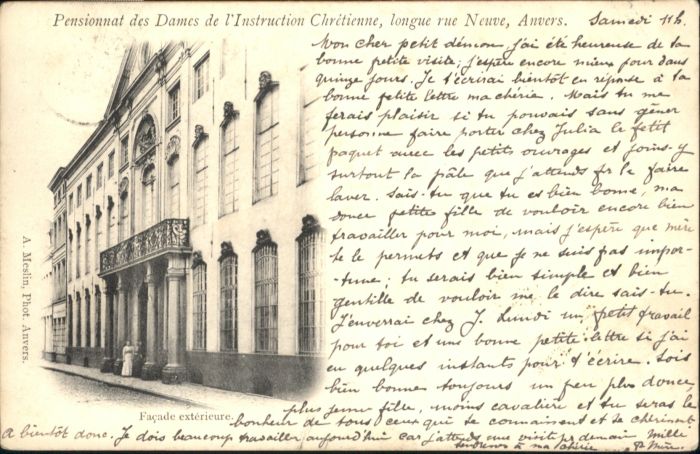 Pensionnat des Dames de l'Instruction Chrétienne, longue rue Neuve, Anvers.
Samedi 11h.
Mon cher petit démon j'ai été heureuse de ta
bonne petite visite; j'espère encore mieux pour dans
quinze jours. Je t'écrirai bientôt en réponse à ta
bonne petite lettre ma chérie. Mais tu me
ferais plaisir si tu pouvais sans gêner
personne faire porter chez Julia le petit
paquet avec les petits ouvrages et joins-y
surtout la pâle que j'attends pr le faire
laver. Sais-tu que tu es bien bonne, ma
douce petite fille de vouloir encore bien
travailler pour moi, mais j'espère que mère
te le permets et que je ne suis pas impor-
-tune; tu serais bien simple et bien
gentille de vouloir me le dire sais-tu.
J'enverrai chez J. Lundi un petit travail
pour toi et une bonne petite lettre si j'ai
eu quelques instants pour t'écrire. Sois
bien bonne toujours un peu plus douce
plus jeune fille, moins cavalière et tu seras le
bonheur de tous ceux qui te connaissent et te chérissent
A bientôt donc. Je dois beaucoup travailler aujourd'hui car j'attends une visite pr demain. Mille
tendresses à ma chérie
A. Meslin, Phot. Anvers.
Façade extérieure.